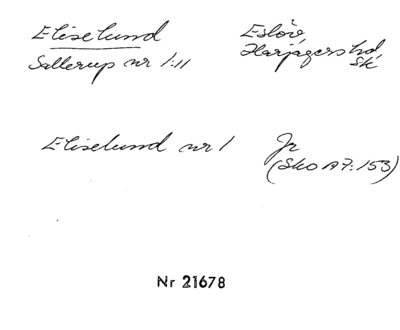 Eliselund Eslöv,
Sallerup nr 1:11 Harjagers hd
Sk
Eliselund nr 1 Jr
(Sko A7:153)
Nr 21678